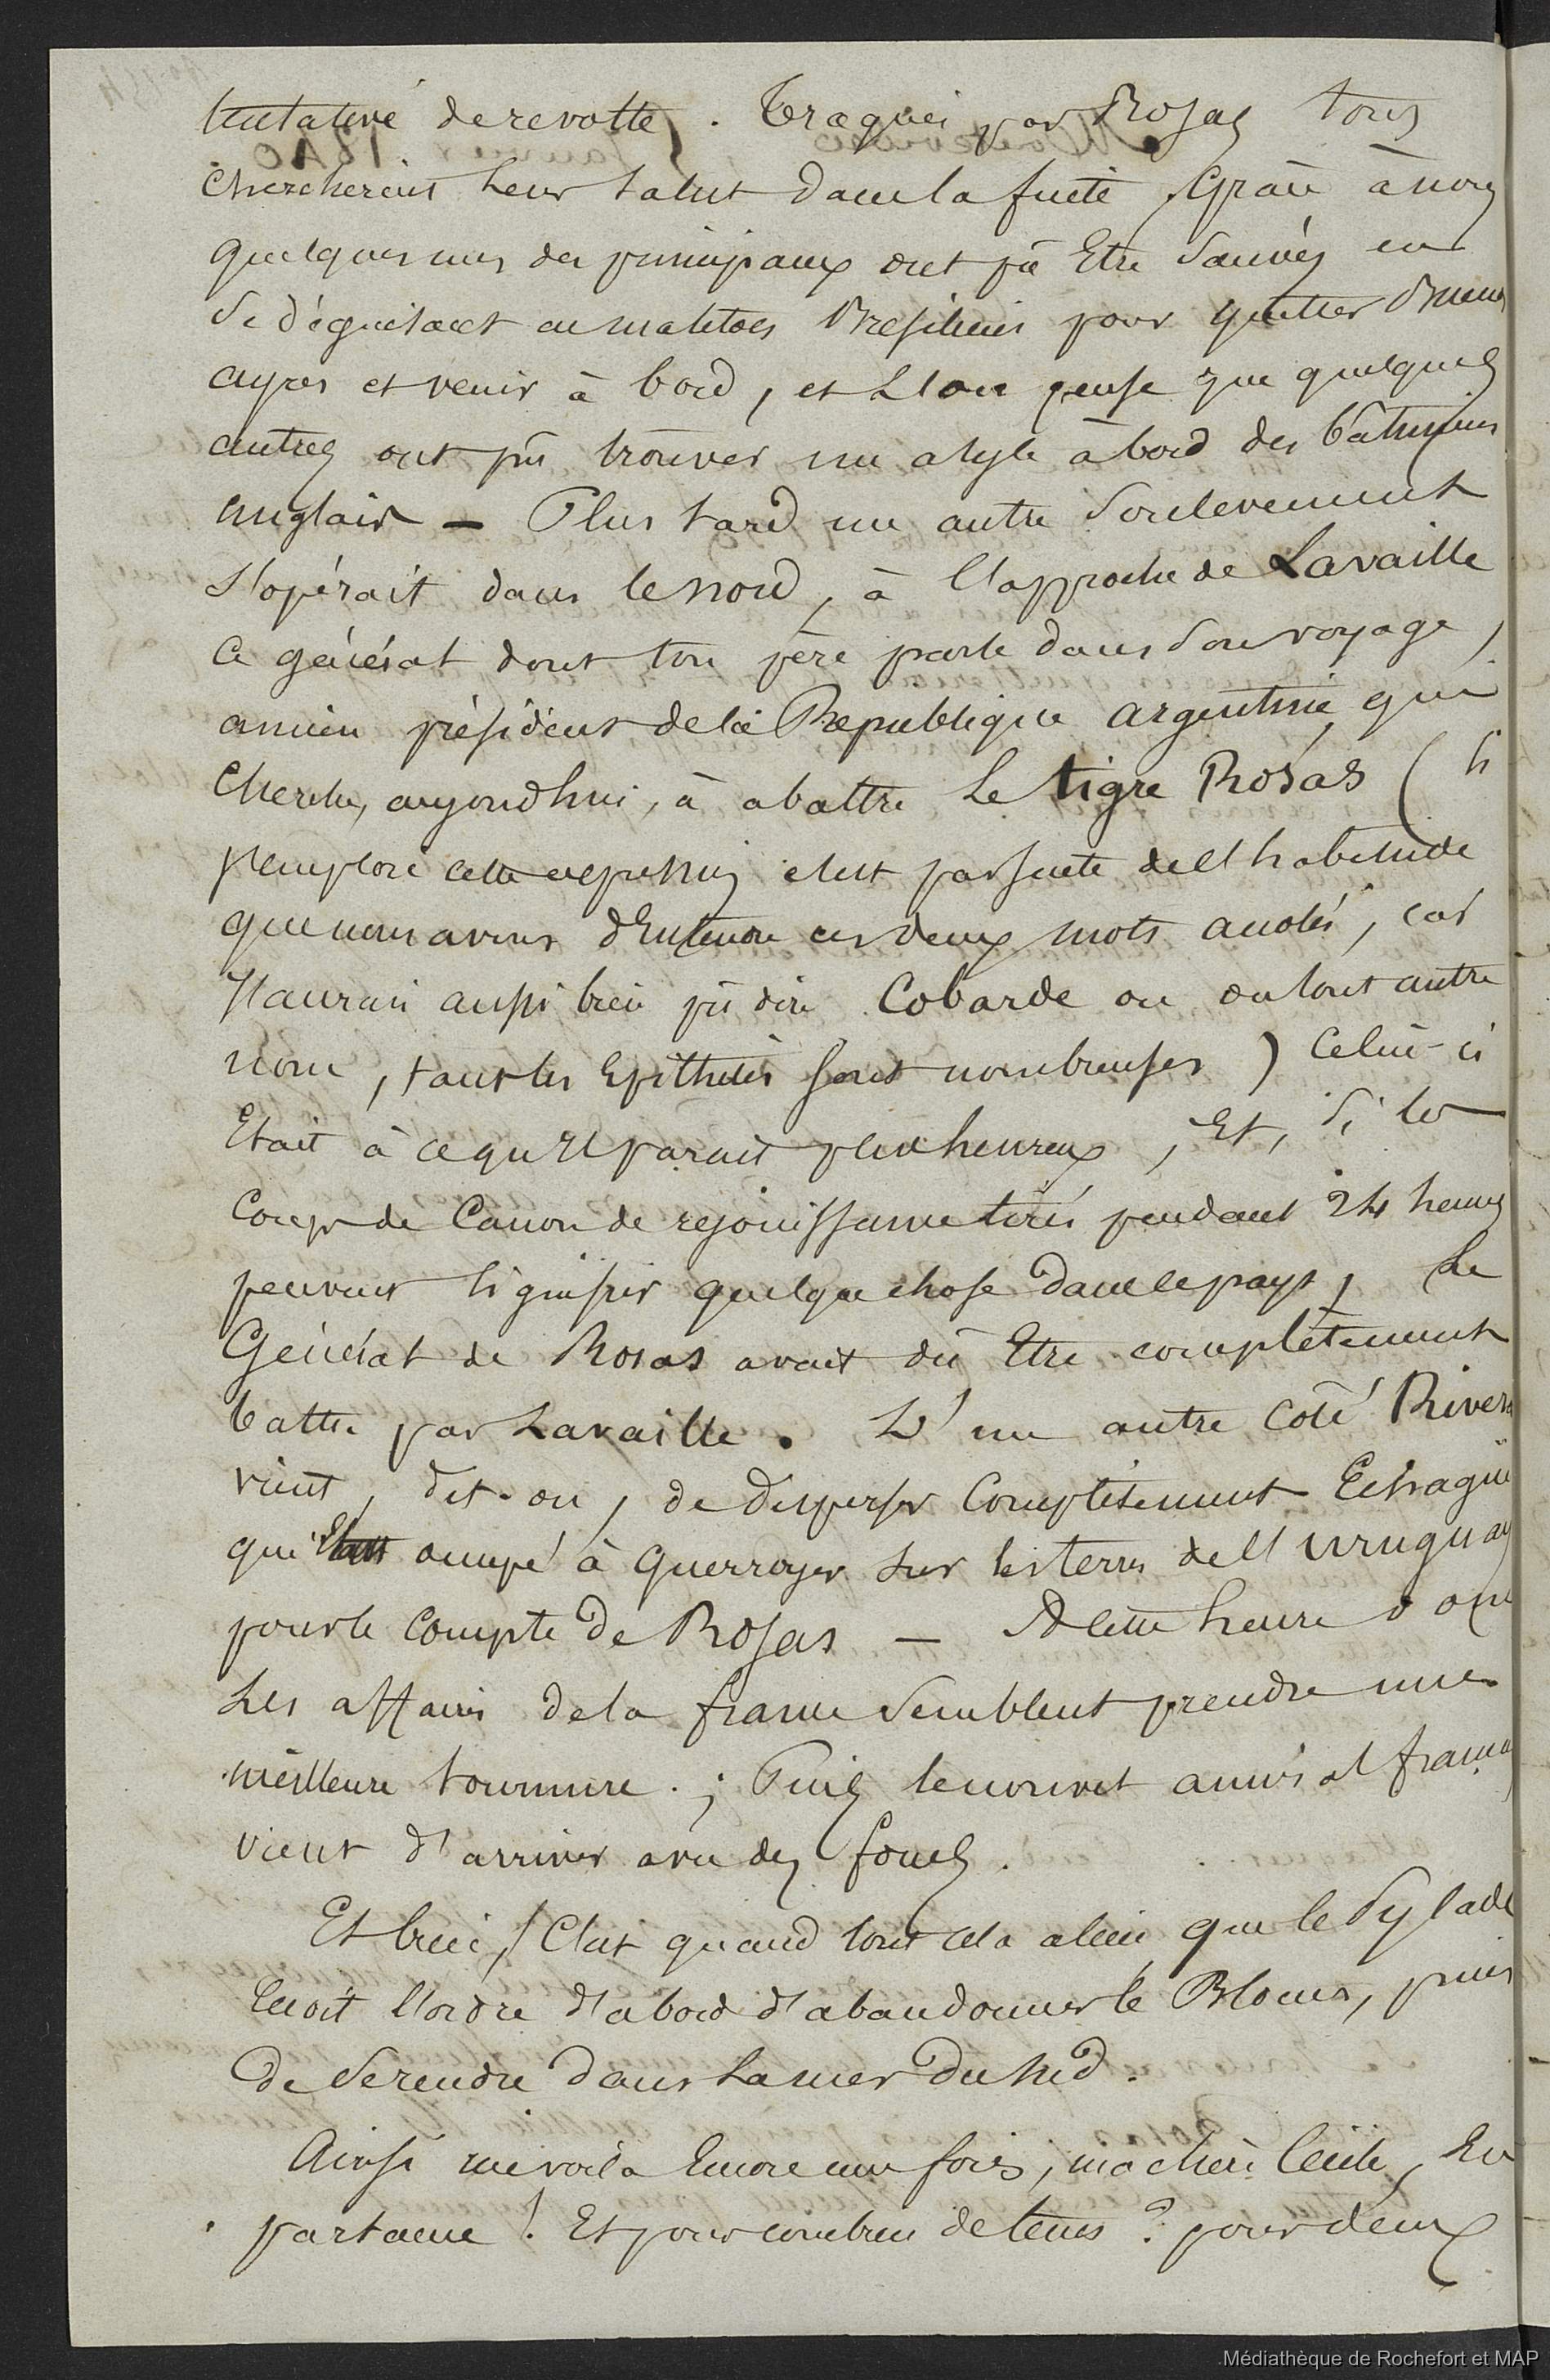 tentative de revolte. Traqués par Rosas tous
chercherent leur salut dans la fuite, Grace à nous
quelques uns des principaux ont pû Etre Sauvés en
Se déguisant en matelots Bresiliens pour quitter Buenos
ayres et venir à bord, et l'on pense que quelques
autres ont pû trouver un asyle à bord des bâtimens
anglais — Plus tard un autre Soulevement
s'opérait dans le nord, à l'approche de Lavaille
ce général dont ton père parle dans Son voyage,
ancien président de la Republique argentine, qui
cherche, aujourdhui, à abattre Le tigre Rosas (si
j'emploie cette expression c'est par suite de l'habitude
que nous avons d'Entendre ces deux mots accolés, car
j'aurais aussi bien pû dire Cobarde ou tout autre
nom, tant les Epithetes sont nombreuses) Celui-ci
Etait à ce qu'il parait plus heureux, Et, Si les
Coups de Canon de rejouissance tirés pendant 24 heures
peuvent signifier quelque chose dans ce pays, Le
Général de Rosas avait dû Etre complètement
battu par Lavaille. D'un autre Coté Rivera
vient, dit-on, de disperser Complètement Echague
qui Etait occupé à Guerroyer sur les terres de l'Uruguay
pour le Compte de Rosas — A cette heure donc
Les affaires de la france Semblent prendre une
meilleure tournure.; Puis le nouvel amiral français
vient d'arriver avec des fonds.
Et bien, C'est quand tout cela a lieu que le Pylade
reçoit l'ordre d'abord d'abandonner le Blocus, puis
de Se rendre dans La mer du Sud.
Ainsi me voilà Encore une fois, ma chère Cécile, En
partance! Et pour combien de tems? pour deux
Médiathèque de Rochefort et MAP